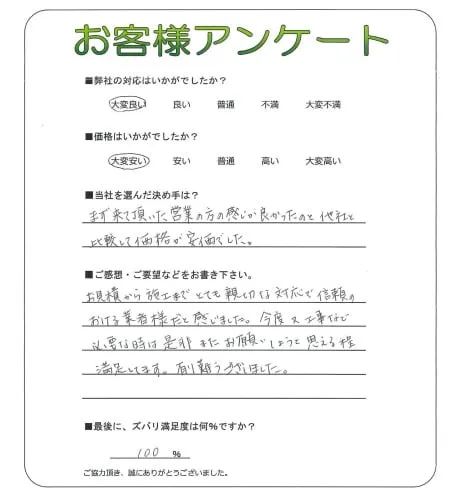 お客様アンケート
■弊社の対応はいかがでしたか？
大変良い 良い 普通 不満 大変不満
■価格はいかがでしたか？
大変安い 安い 普通 高い 大変高い
■当社を選んだ決め手は？
まず来て頂いた営業の方の感じが良かったのと他社と
比較して価格が安価でした。
■ご感想・ご要望などをお書き下さい。
お見積から施工まで とても親切な対応で信頼の
おける業者様だと感じました。今度又工事など
必要な時は是非またお願いしようと思える程
満足してます。有り難うございました。
■最後に、ズバリ満足度は何%ですか？
100 %
ご協力頂き、誠にありがとうございました。